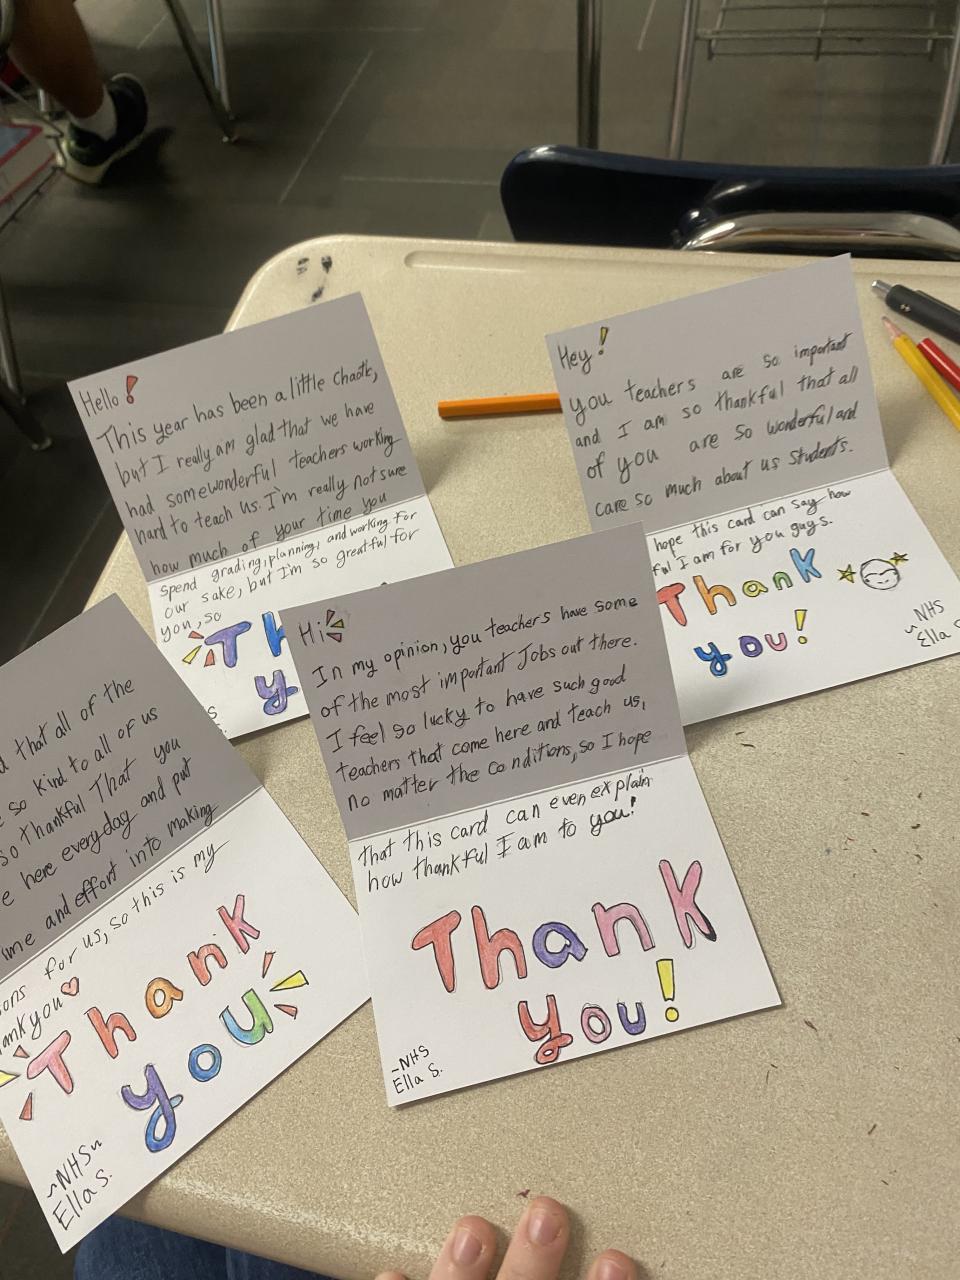 Hello!
This year has been a little chaotic,
but I really am glad that we have
had some wonderful teachers working
hard to teach us. I'm really not sure
how much of your time you
spend grading, planning, and working for
our sake, but I'm so greatful for
you, so
Th
y
S
Hey!
you teachers are so important
and I am so thankful that all
of you are so wonderful and
care so much about us students.
hope this card can say how
ful I am for you guys.
Thank
you!
~NHS
Ella S
that all of the
so kind to all of us
so thankful That you
e here everyday and put
ime and effort into making
ons for us, so this is my
ank you
Thank
you
~NHS~
Ella S.
Hi
In my opinion, you teachers have some
of the most important Jobs out there.
I feel so lucky to have such good
teachers that come here and teach us,
no matter the conditions, so I hope
that this card can even explain
how thankful I am to you!
Thank
you!
~NHS
Ella S.